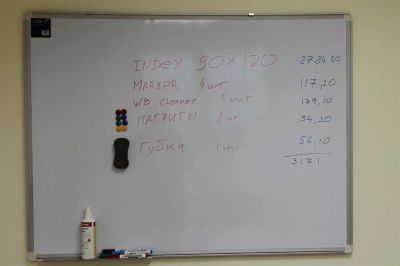 INDEX 90×120 2784,30
MARKER 4 шт 117,20
W/B cleaner 1 шт 179,10
МАГНИТЫ 8 шт 34,30
Губка 1 шт 56,10
3171